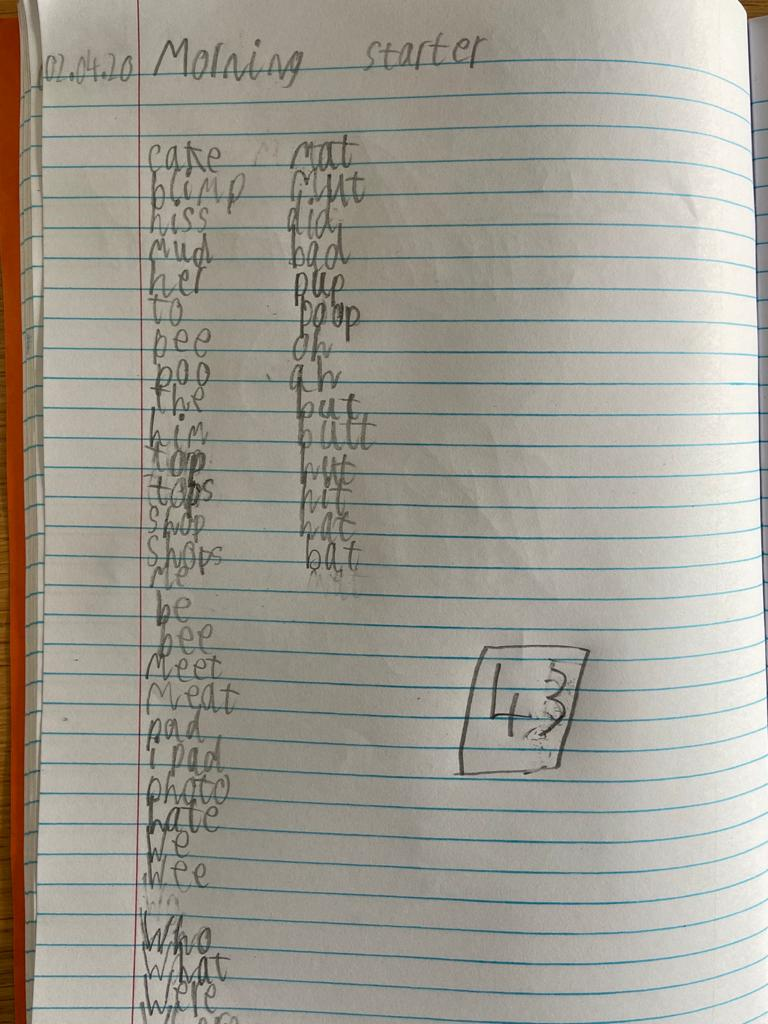 02.04.20 Morning starter
cake
blimp
hiss
mud
her
to
pee
poo
the
him
top
tops
shop
shops
me
be
bee
meet
meat
pad
ipad
photo
hate
we
wee
who
what
were
mat
mut
did
bad
pup
poop
oh
ah
but
butt
hut
hit
hat
bat
43